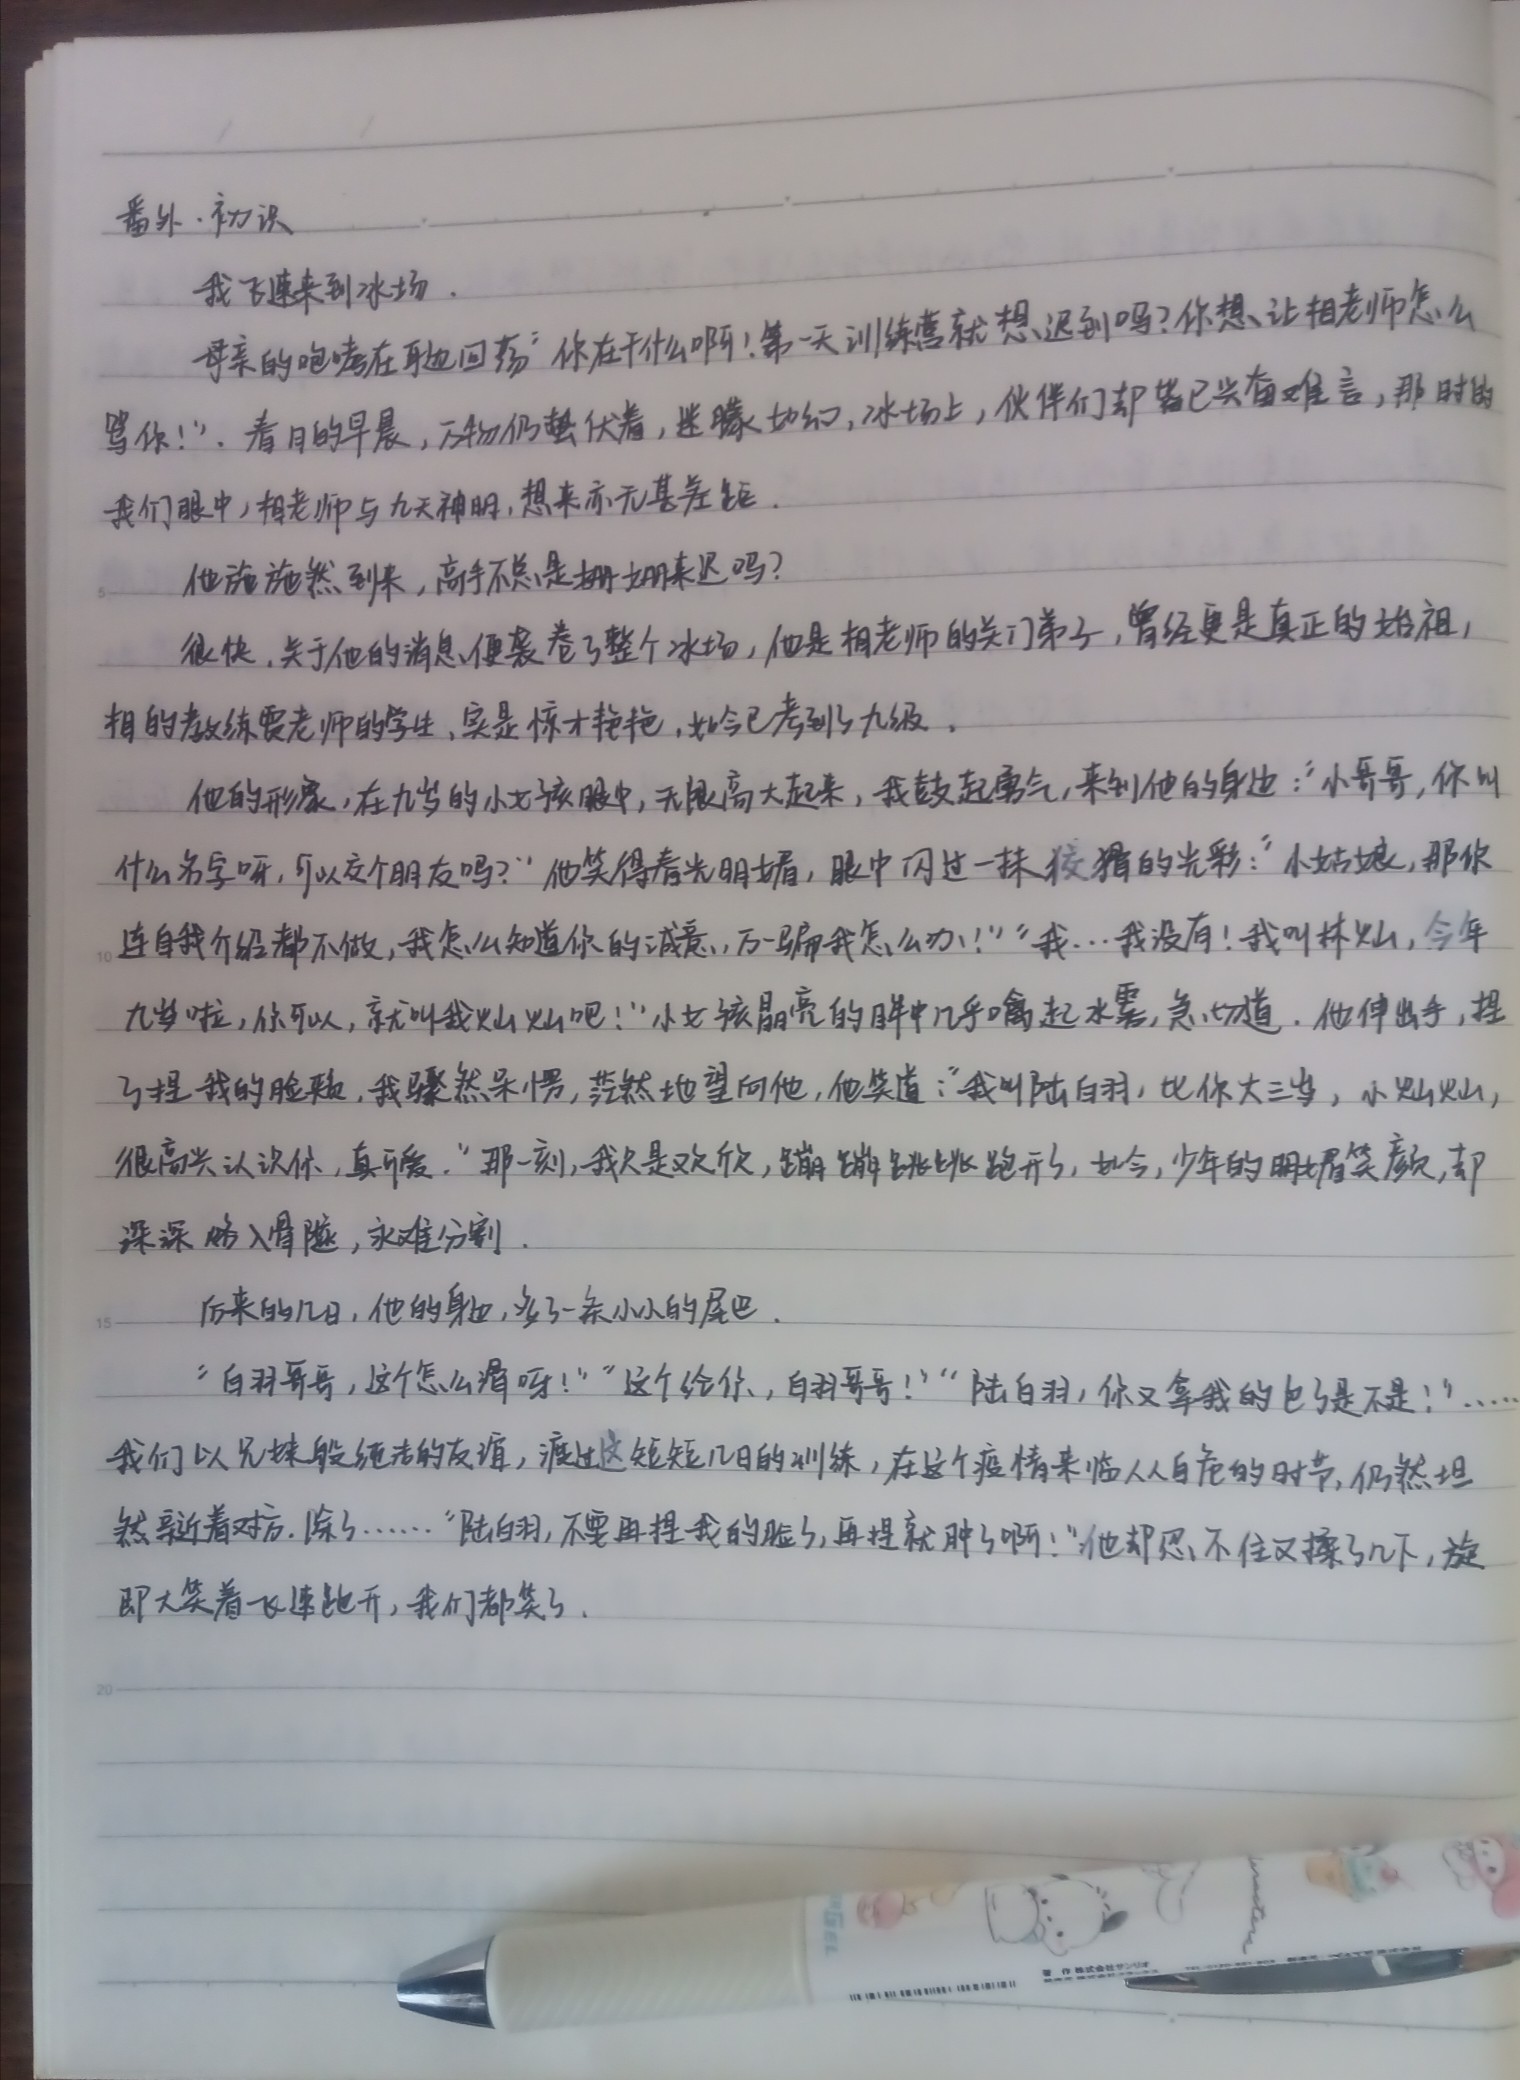 番外·初识
我飞速来到冰场.
母亲的咆哮在耳边回荡“你在干什么啊！第一天训练营就想迟到吗？你想让相老师怎么
骂你！”.春日的早晨，万物仍蛰伏着，迷朦如幻,冰场上，伙伴们却皆已兴奋难言，那时的
我们眼中，相老师与九天神明,想来亦无甚差距.
他施施然到来，高手不总是姗姗来迟吗？
很快,关于他的消息便袭卷了整个冰场，他是相老师的关门弟子，曾经更是真正的始祖，
相的教练贾老师的学生,实是惊才艳艳，如今已考到了九级.
他的形象，在九岁的小女孩眼中，无限高大起来，我鼓起勇气，来到他的身边：“小哥哥，你叫
什么名字呀，可以交个朋友吗？”他笑得春光明媚，眼中闪过一抹狡猾的光彩：“小姑娘，那你
连自我介绍都不做，我怎么知道你的诚意，万一骗我怎么办！”“我...我没有！我叫林灿，今年
九岁啦，你可以，就叫我灿灿吧！”小女孩晶亮的眸中几乎噙起水雾，急切道.他伸出手，捏
了捏我的脸颊，我骤然呆愣，茫然地望向他，他笑道：“我叫陆白羽，比你大三岁，小灿灿，
很高兴认识你，真可爱.”那一刻，我只是欢欣，蹦蹦跳跳跑开了，如今，少年的明媚笑颜，却
深深烙入骨髓，永难分割.
后来的几日，他的身边，多了一条小小的尾巴.
“白羽哥哥，这个怎么滑呀！”“这个给你，白羽哥哥！”“陆白羽，你又拿我的包了是不是！”......
我们以兄妹般纯洁的友谊，渡过这短短几日的训练，在这个疫情来临人人自危的时节,仍然坦
然亲近着对方.除了......“陆白羽，不要再捏我的脸了，再捏就肿了啊！”他却忍不住又揉了几下，旋
即大笑着飞速跑开，我们都笑了.
著 作 株式会社サンリオ